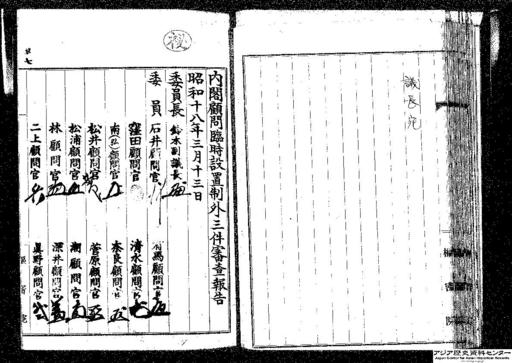 議長宛
秘
内閣顧問臨時設置制外三件審査報告
昭和十八年三月十三日
委員長 鈴木副議長
委員 石井顧問官
有馬顧問官
窪田顧問官
清水顧問官
南顧問官
奈良顧問官
松井顧問官
菅原顧問官
松浦顧問官
潮顧問官
林顧問官
深井顧問官
二上顧問官
眞野顧問官
アジア歴史資料センター
Japan Center for Asian Historical Records